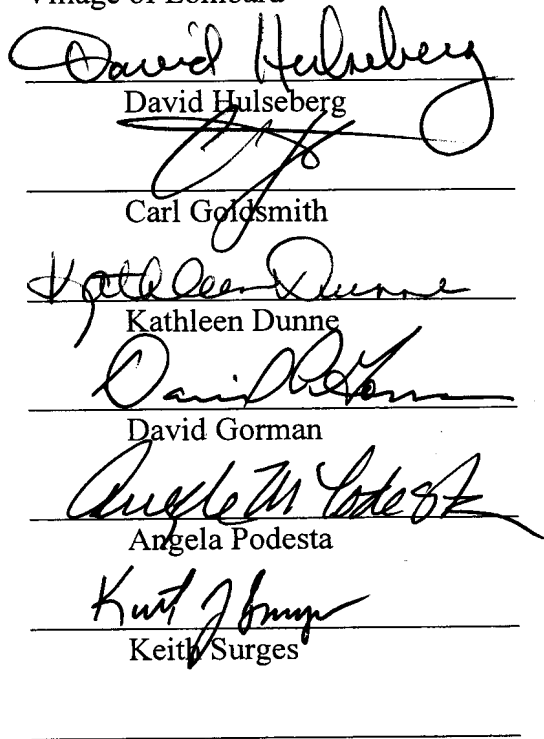 Village of Lombard
David Hulseberg
David Hulseberg
Carl Goldsmith
Kathleen Dunne
Kathleen Dunne
David Gorman
David Gorman
Angela M Podesta
Angela Podesta
Kurt J
Keith Surges